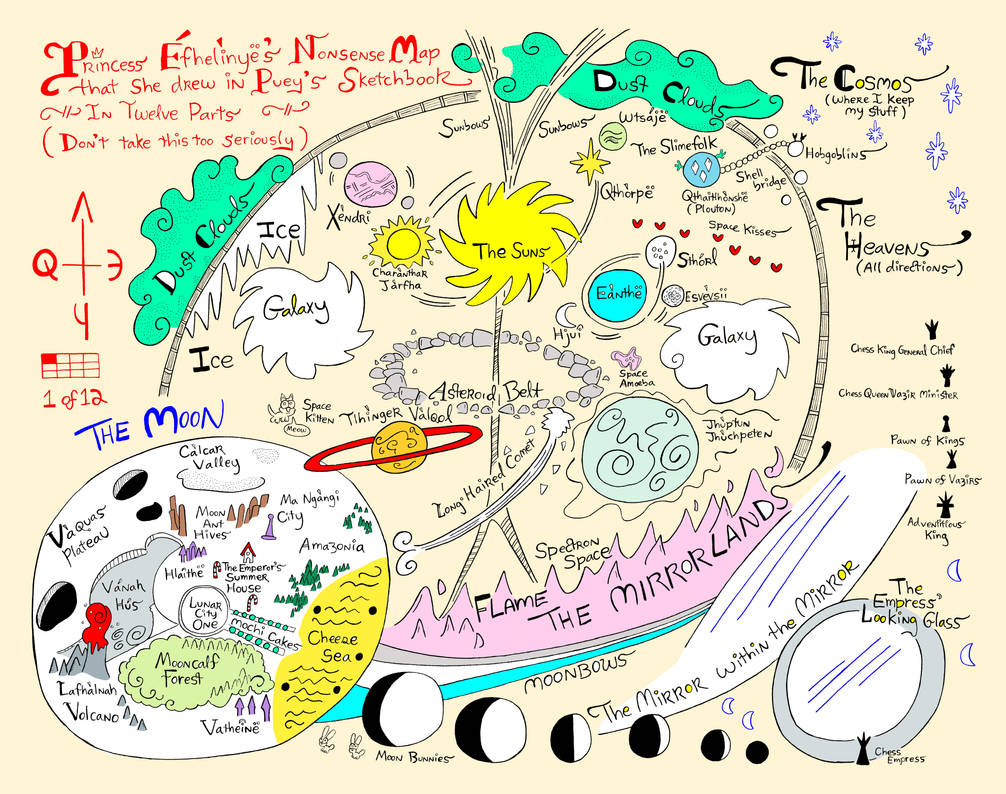 Princess Éfhelìnyë's Nonsense Map
that She drew in Puey's Sketchbook
In Twelve Parts
(Don't take this too seriously)
Dust Clouds
Dust Clouds
The Cosmos
(Where I Keep
my stuff)
Sunbows
Sunbows
Utsåjë
The Slimefolk
Hobgoblins
Shell
bridge
Qthårpë
Qthaitlhònshë
(Plouton)
Xèndri
Ice
Ice
The Suns
Charånthar
Jårfha
Space Kisses
The
Heavens
(All directions)
Sthórl
Eånthë
Esvèvsii
Hjúi
Galaxy
Galaxy
Q
4
1 of 12
Space
Amoeba
Asteroid Belt
Chess King General Chief
Chess Queen Vazir Minister
Pawn of Kings
Pawn of Vazirs
Adventitious
King
Space
Kitten
Meow
Tihìnger Válqol
Jhùptun
Jhùchpeten
Long Haired Comet
Spectron
Space
Flame
The Mirrorlands
THE MOON
Cålcar
Valley
Våquas
Plateau
Moon
Ant
Hives
Ma Ngångi
City
Amazonia
Hlaìthë
The Emperor's
Summer
House
Vánah
Hús
Lunar
City
One
Mochi Cakes
Cheese
Sea
Mooncalf
Forest
Lafhàlnah
Volcano
Vatheìnë
Moonbows
Moon Bunnies
The Mirror Within the Mirror
The
Empress'
Looking Glass
Chess
Empress